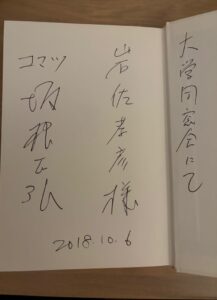 大学同窓会にて
岩佐孝彦様
コマツ
坂根正弘
2018.10.6